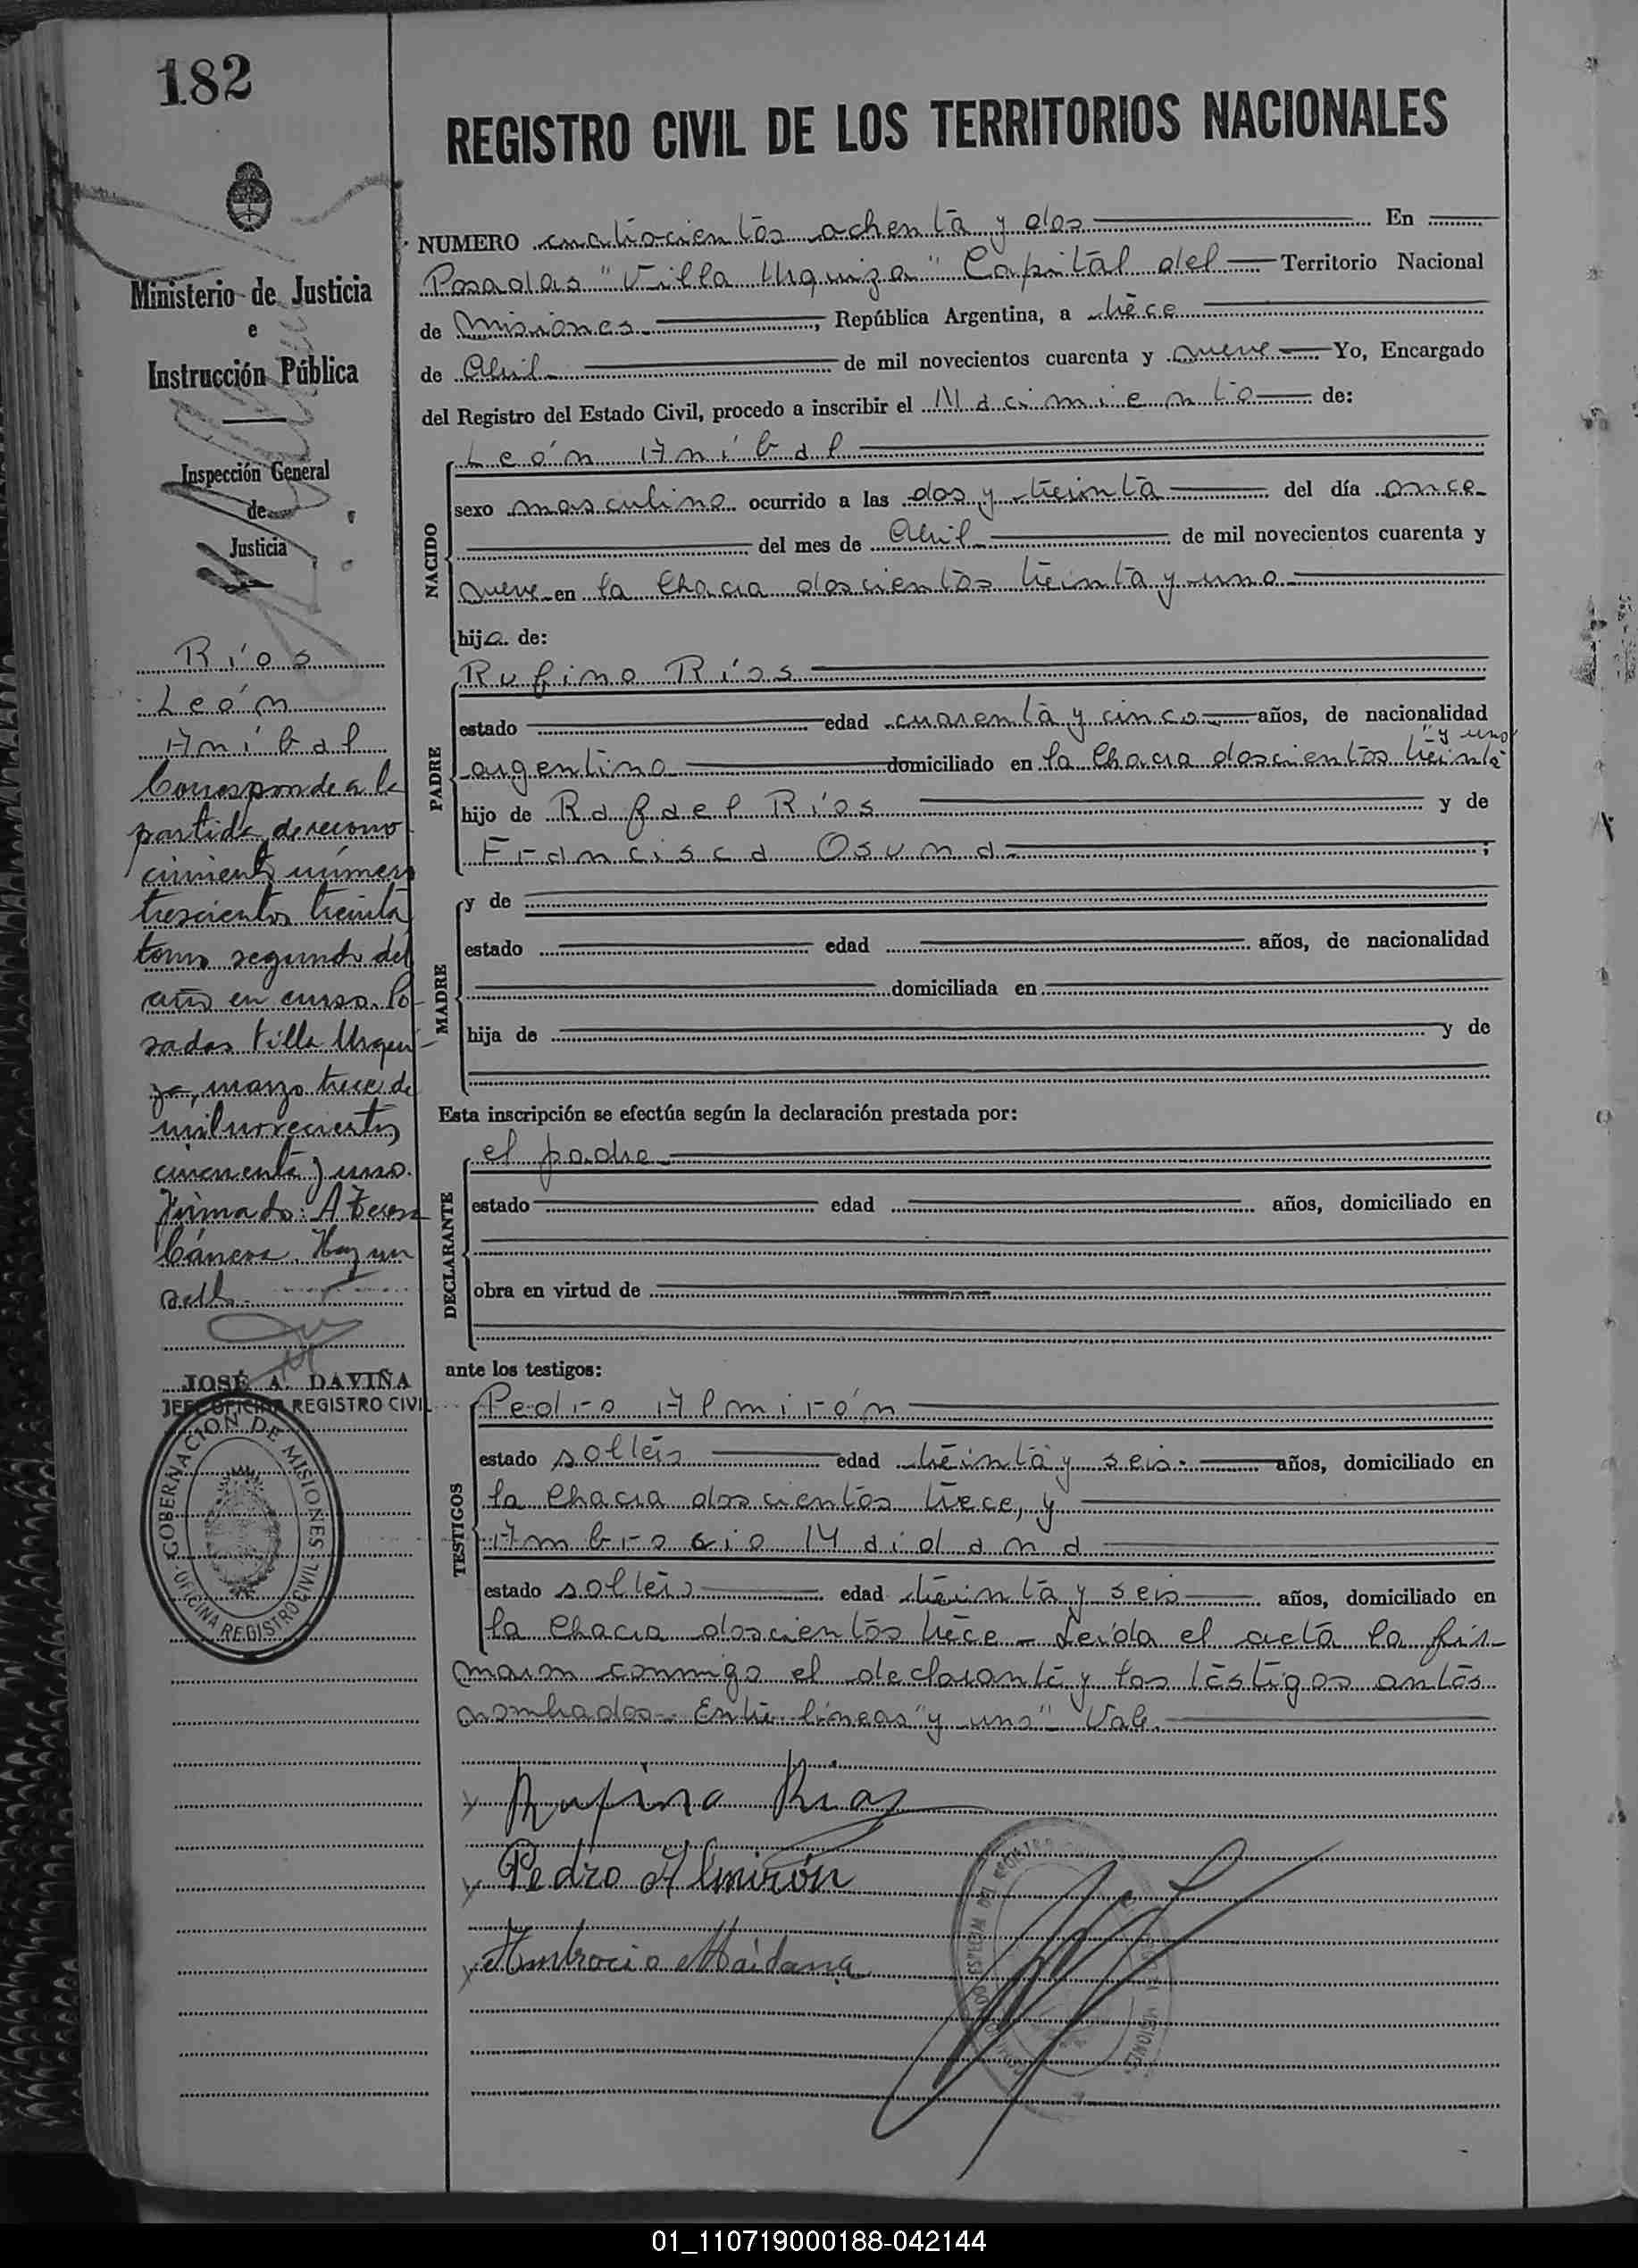 182
Ministerio de Justicia
e
Instrucción Pública
Inspección General
de
Justicia
Ríos
León
Aníbal
Corresponde a la
partida de recono
cimiento número
trescientos treinta
tomo segundo del
año en curso. Po-
sadas Villa Urqui-
za, marzo trece de
mil novecientos
cincuenta y uno.
Firmado: A
Hay un
sello.
JOSÉ A. DAVIÑA
JEFE OFICINA REGISTRO CIVIL
GOBERNACION DE MISIONES
OFICINA REGISTRO CIVIL
REGISTRO CIVIL DE LOS TERRITORIOS NACIONALES
NUMERO cuatrocientos ochenta y dos En
Posadas "Villa Urquiza" Capital del Territorio Nacional
de Misiones, República Argentina, a trece
de Abril de mil novecientos cuarenta y nueve Yo, Encargado
del Registro del Estado Civil, procedo a inscribir el Nacimiento de:
NACIDO
León Aníbal
sexo masculino ocurrido a las dos y treinta del día once
del mes de Abril de mil novecientos cuarenta y
nueve en la Chacra doscientos treinta y uno
hijo de:
PADRE
Rufino Ríos
estado edad cuarenta y cinco años, de nacionalidad
y uno
argentino domiciliado en la Chacra doscientos treinta
hijo de Rafael Ríos y de
Francisca Osuna ;
MADRE
y de
estado edad años, de nacionalidad
domiciliada en
hija de y de
Esta inscripción se efectúa según la declaración prestada por:
DECLARANTE
el padre
estado edad años, domiciliado en
obra en virtud de
ante los testigos:
TESTIGOS
Pedro Almirón
estado soltero edad treinta y seis años, domiciliado en
la Chacra doscientos trece, y
Ambrosio Maidana
estado soltero edad treinta y seis años, domiciliado en
la Chacra doscientos trece - Leída el acta la fir-
maron conmigo el declarante y los testigos antes
nombrados - Entre líneas "y uno" Vale.
Rufino Rios
Pedro Almirón
Ambrocio Maidana
01_110719000188-042144